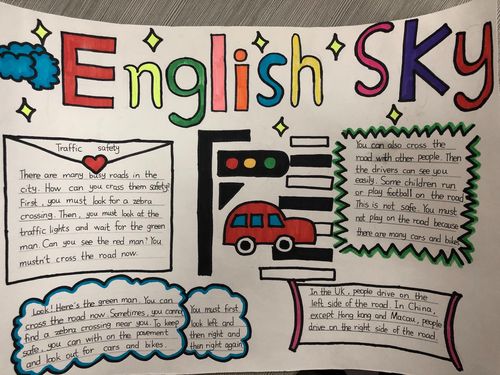 English Sky
Traffic safety
There are many busy roads in the
city. How can you crass them safety?
First, you must look for a zebra
crossing. Then, you must look at the
traffic lights and wait for the green
man. Can you see the red man? You
mustn't cross the road now.
You can also cross the
road with other people. Then
the drivers can see you
easily. Some children run
or play football on the road
This is not safe. You must
not play on the road because
there are many cars and bikes
Look! Here's the green man. You can
cross the road now. Sometimes, you cannot
find a zebra crossing near you. To keep
safe, you can with on the pavement
and look out for cars and bikes.
You must first
look left and
then right and
then right again
In the UK, people drive on the
left side of the road. In China,
except Hong kong and Macau, people
drive on the right side of the road.